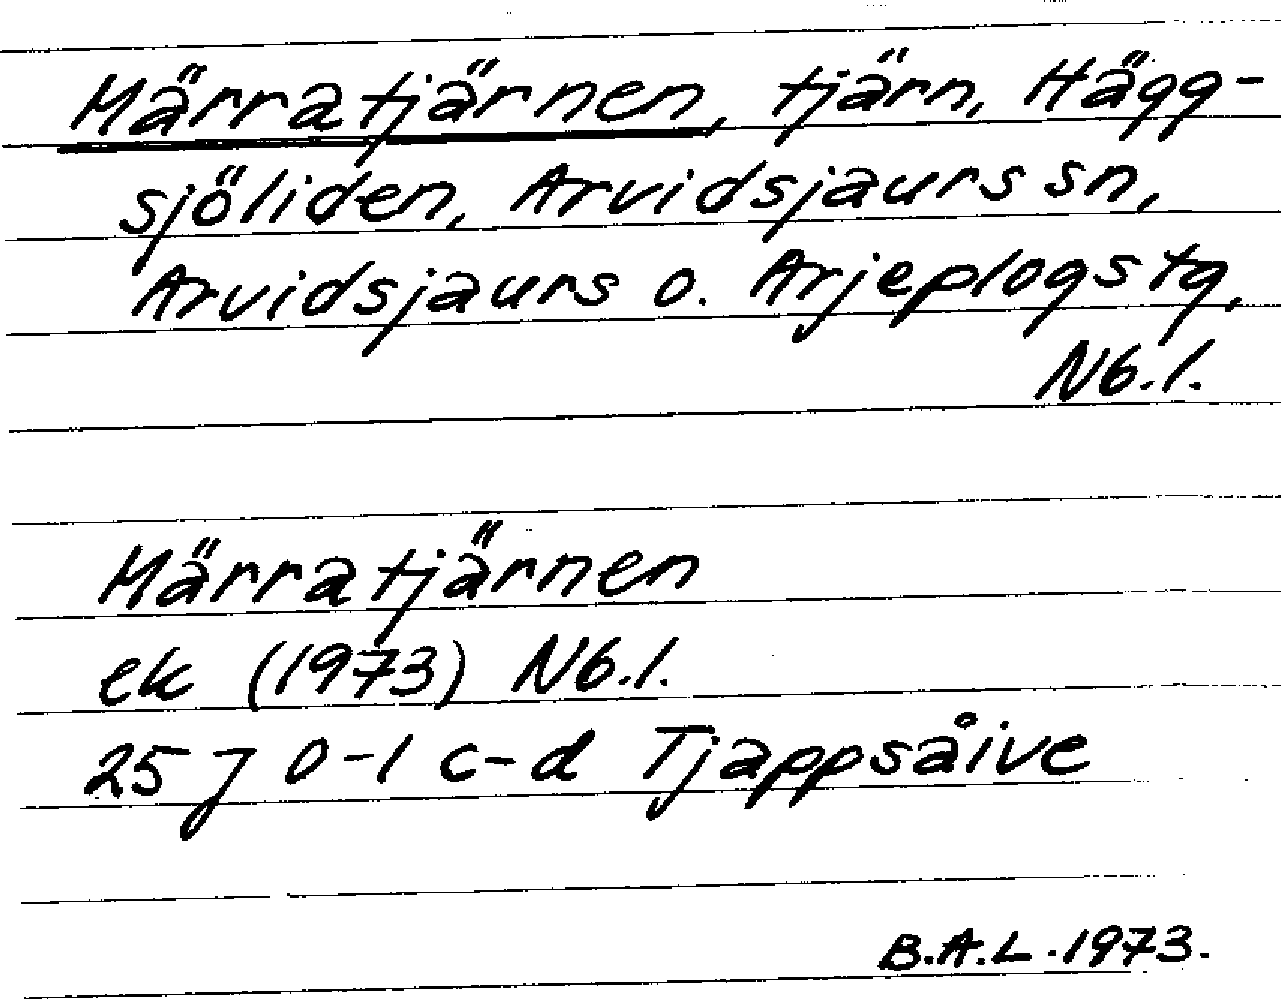 Märratjärnen, tjärn, Hägg-
sjöliden, Arvidsjaurs sn,
Arvidsjaurs o. Arjeplogs tg,
Nb.l.
Märratjärnen
ek (1973) Nb.l.
25 J 0-1 c-d Tjappsåive
B.A.L. 1973.